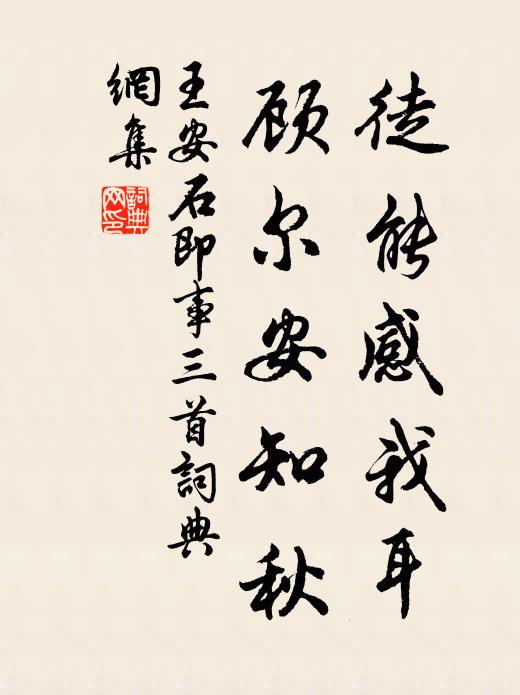 徒能感我耳
顾尔安知秋
王安石即事三首詞典
網集
詞典
网印